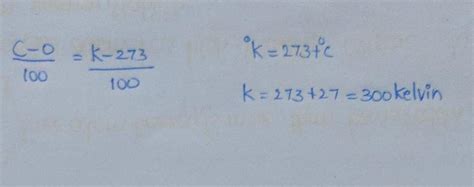 C-0/100 = K-273/100
°K = 273+°C
K = 273+27 = 300 kelvin